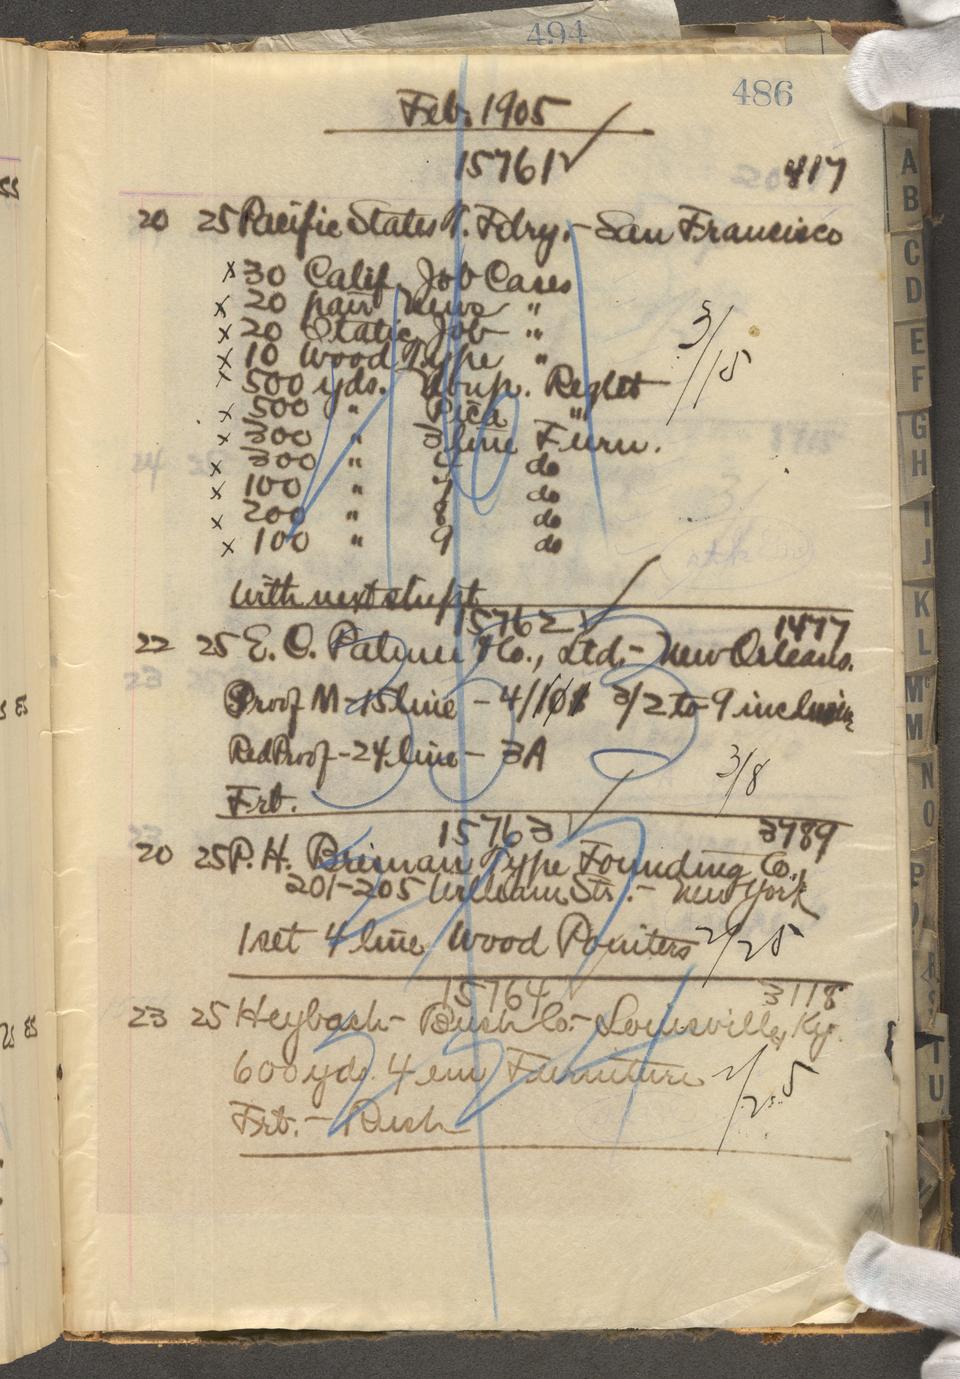 494
486
Feb. 1905
15761 417
20 25 Pacific States T. Fdry. - San Francisco
x 30 Calif. Job Cases
x 20 pair News "
x 20 Static. Job "
x 10 Wood Type "
x 500 yds. Reglet
x 500 " Pica "
x 300 " 3 line Furn.
x 300 " do
x 100 " 7 do
x 200 " 8 do
x 100 " 9 do
3/15
With next shipt
15762 1477
22 25 E. O. Palmer Co., Ltd. - New Orleans.
Proof M - 15 line - 4/ 3/2 to 9 inclusive
Red Proof - 24 line - 3A
3/8
Frt.
15763 3789
20 25 P. H. Type Founding Co.,
201-205 William Str. - New York
1 set 4 line Wood Pointers 2/25
15764 3118
23 25 Heybach - Bush Co. - Louisville, Ky.
600 yds. 4 em Furniture 2/25
Frt. - Rush
A
B
C
D
E
F
G
H
I
J
K
L
Mc
M
N
O
P
R
S
T
U